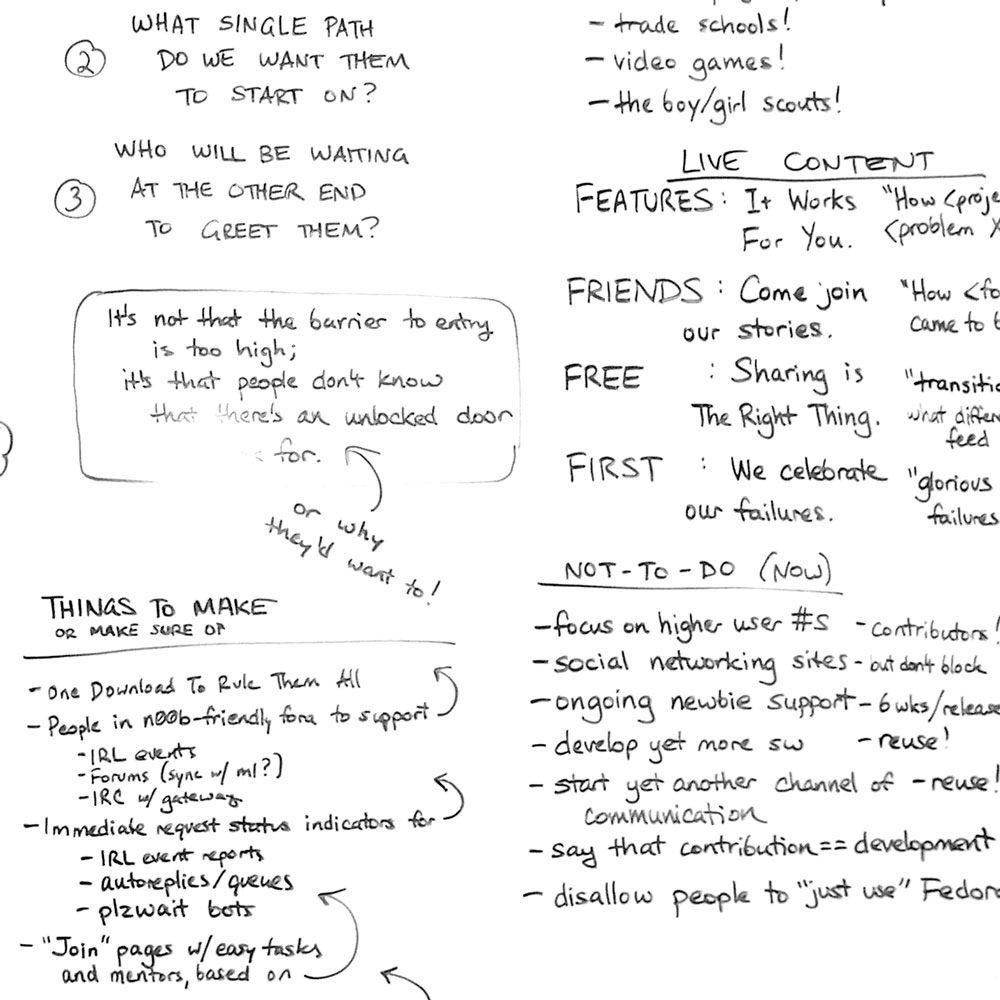 ② WHAT SINGLE PATH
DO WE WANT THEM
TO START ON?
③ WHO WILL BE WAITING
AT THE OTHER END
TO GREET THEM?
It's not that the barrier to entry
is too high;
it's that people don't know
that there's an unlocked door
for.
or why
they'd want to!
THINGS TO MAKE
OR MAKE SURE OF
- One Download To Rule Them All
- People in n00b-friendly fora to support
- IRL events
- Forums (sync w/ ml?)
- IRC w/ gateway
- Immediate request status indicators for
- IRL event reports
- autoreplies/queues
- plzwait bots
- "Join" pages w/ easy tasks
and mentors, based on
- trade schools!
- video games!
- the boy/girl scouts!
LIVE CONTENT
FEATURES: It Works "How <proje
For You. <problem X
FRIENDS: Come join "How <fo
our stories. came to b
FREE : Sharing is "transitio
The Right Thing. what differ
feed
FIRST : We celebrate "glorious
our failures. failures
NOT-TO-DO (NOW)
- focus on higher user #s - contributors!
- social networking sites - but don't block
- ongoing newbie support - 6 wks/release
- develop yet more sw - reuse!
- start yet another channel of - reuse!
communication
- say that contribution == development
- disallow people to "just use" Fedora